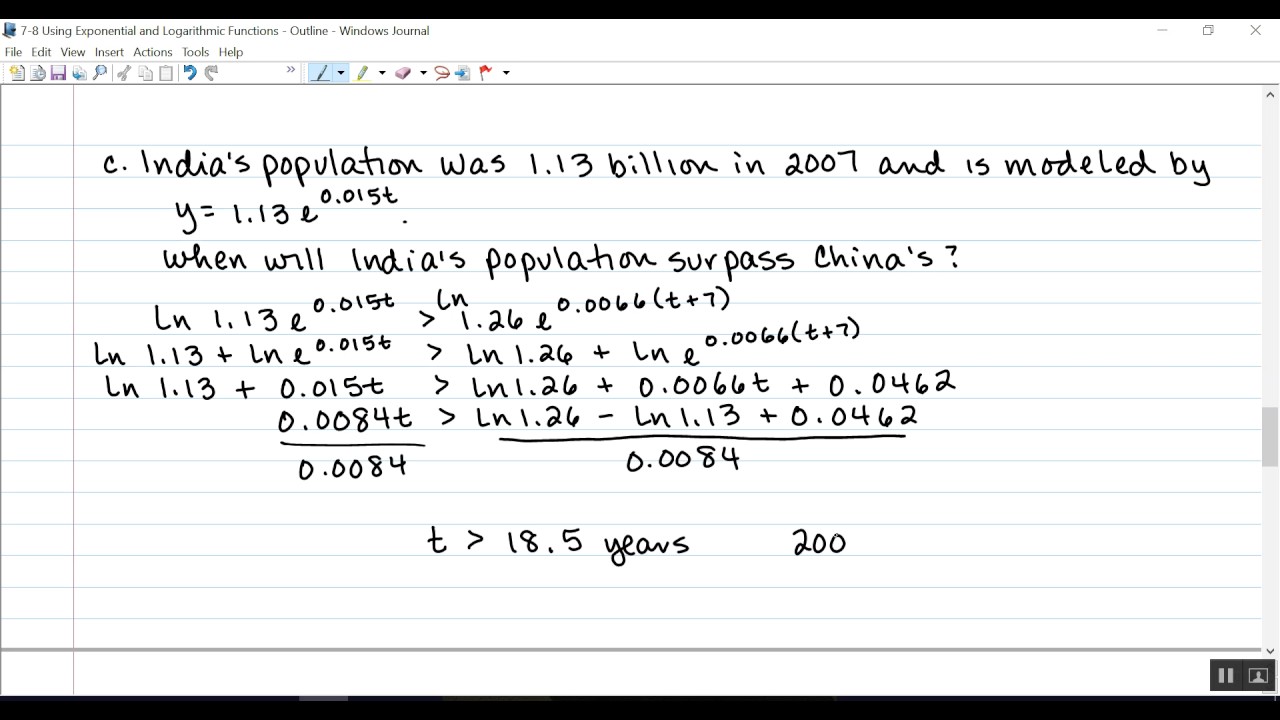 7-8 Using Exponential and Logarithmic Functions - Outline - Windows Journal
File Edit View Insert Actions Tools Help
c. India's population was 1.13 billion in 2007 and is modeled by
y = 1.13 e^0.015t .
when will India's population surpass China's?
ln 1.13 e^0.015t > ln 1.26 e^0.0066(t+7)
ln 1.13 + ln e^0.015t > ln 1.26 + ln e^0.0066(t+7)
ln 1.13 + 0.015t > ln 1.26 + 0.0066t + 0.0462
0.0084t > ln 1.26 - ln 1.13 + 0.0462
0.0084 0.0084
t > 18.5 years 200